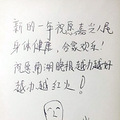 新的一年祝愿嘉兴人民
身体健康，合家欢乐！
祝愿南湖晚报越办越好
越办越红火！